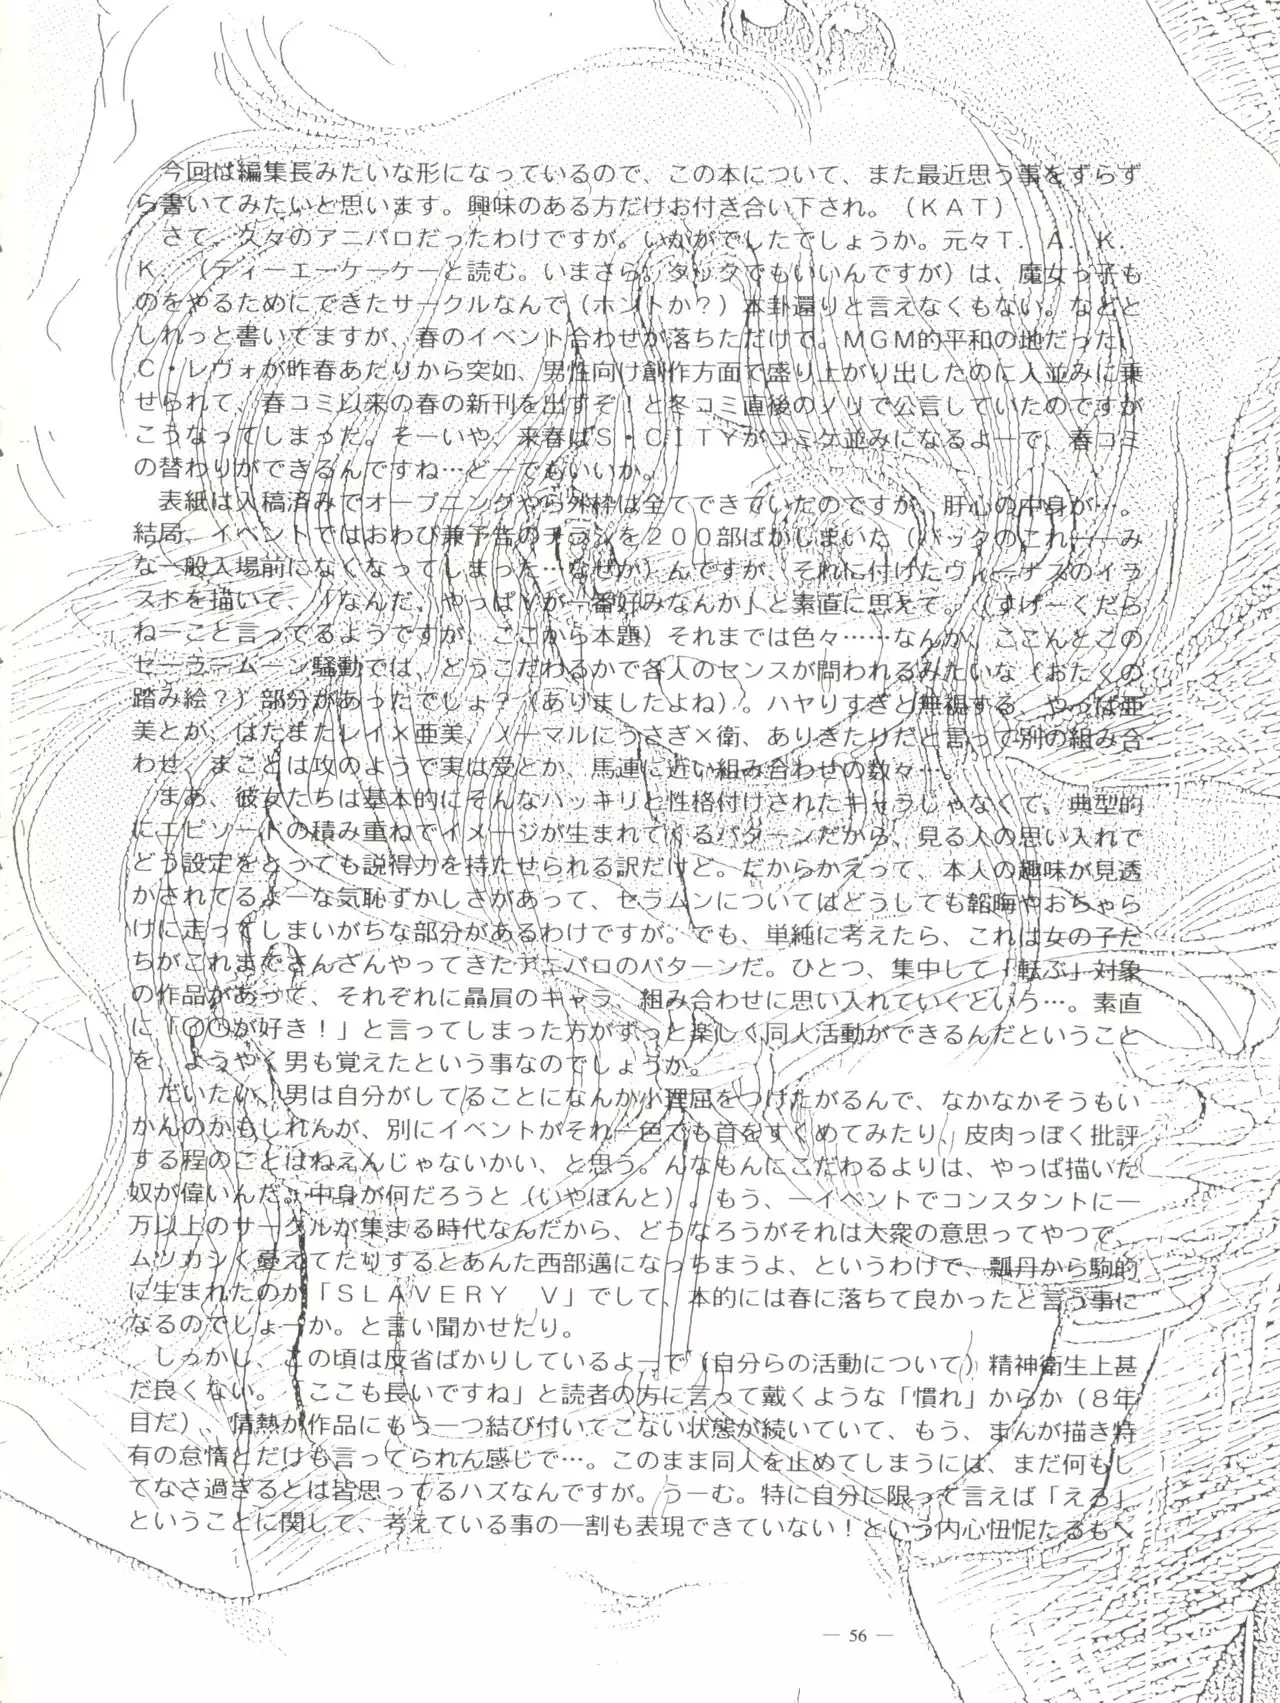 今回は編集長みたいな形になっているので、この本について、また最近思う事をずらず
ら書いてみたいと思います。興味のある方だけお付き合い下され。（ＫＡＴ）
さて、久々のアニパロだったわけですが。いかがでしたでしょうか。元々Ｔ．Ａ．Ｋ．
Ｋ．（ティーエーケーケーと読む。いまさら。タックでもいいんですが）は、魔女っ子も
のをやるためにできたサークルなんで（ホントか？）本卦還りと言えなくもない。などと
しれっと書いてますが、春のイベント合わせが落ちただけで。ＭＧＭ的平和の地だった、
Ｃ・レヴォが昨春あたりから突如、男性向け創作方面で盛り上がり出したのに人並みに乗
せられて、春コミ以来の春の新刊を出すぞ！と冬コミ直後のノリで公言していたのですが
こうなってしまった。そーいや、来春はＳ・ＣＩＴＹがコミケ並みになるよーで、春コミ
の替わりができるんですね…どーでもいいか。
表紙は入稿済みでオープニングやら外枠は全てできていたのですが、肝心の中身が…。
結局、イベントではおわび兼予告のチラシを２００部ばかしまいた（バッタのこれ――み
な一般入場前になくなってしまった…なぜか）んですが、それに付けたヴィーナスのイラ
ストを描いて、「なんだ、やっぱＶが一番好みなんか」と素直に思えて。（すげーくだら
ねーこと言ってるようですが、ここから本題）それまでは色々……なんか、ここんとこの
セーラームーン騒動では、どうこだわるかで各人のセンスが問われるみたいな（おたくの
踏み絵？）部分があったでしょ？（ありましたよね）。ハヤりすぎと無視する、やっぱ亜
美とか、はたまたレイ×亜美、ノーマルにうさぎ×衛、ありきたりだと言って別の組み合
わせ、まことは攻のようで実は受とか、馬連に近い組み合わせの数々…。
まあ、彼女たちは基本的にそんなハッキリと性格付けされたキャラじゃなくて、典型的
にエピソードの積み重ねでイメージが生まれてくるパターンだから、見る人の思い入れで
どう設定をとっても説得力を持たせられる訳だけど。だからかえって、本人の趣味が見透
かされてるよーな気恥ずかしさがあって、セラムンについてはどうしても韜晦やおちゃら
けに走ってしまいがちな部分があるわけですが。でも、単純に考えたら、これは女の子た
ちがこれまでさんざんやってきたアニパロのパターンだ。ひとつ、集中して「転ぶ」対象
の作品があって、それぞれに贔屓のキャラ、組み合わせに思い入れていくという…。素直
に「○○が好き！」と言ってしまった方がずっと楽しく同人活動ができるんだということ
を、ようやく男も覚えたという事なのでしょうか。
だいたい、男は自分がしてることになんか小理屈をつけたがるんで、なかなかそうもい
かんのかもしれんが、別にイベントがそれ一色でも首をすくめてみたり、皮肉っぽく批評
する程のことはねえんじゃないかい、と思う。んなもんにこだわるよりは、やっぱ描いた
奴が偉いんだ。中身が何だろうと（いやほんと）。もう、一イベントでコンスタントに一
万以上のサークルが集まる時代なんだから、どうなろうがそれは大衆の意思ってやつで、
ムツカシく憂えてたりするとあんた西部邁になっちまうよ、というわけで、瓢丹から駒的
に生まれたのが「ＳＬＡＶＥＲＹ　Ｖ」でして、本的には春に落ちて良かったと言う事に
なるのでしょーか。と言い聞かせたり。
しっかし、この頃は反省ばかりしているよーで（自分らの活動について）精神衛生上甚
だ良くない。「ここも長いですね」と読者の方に言って戴くような「慣れ」からか（８年
目だ）、情熱が作品にもう一つ結び付いてこない状態が続いていて、もう、まんが描き特
有の怠惰とだけも言ってられん感じで…。このまま同人を止めてしまうには、まだ何もし
てなさ過ぎるとは皆思ってるハズなんですが。うーむ。特に自分に限って言えば「えろ」
ということに関して、考えている事の一割も表現できていない！という内心忸怩たるもへ
— 56 —